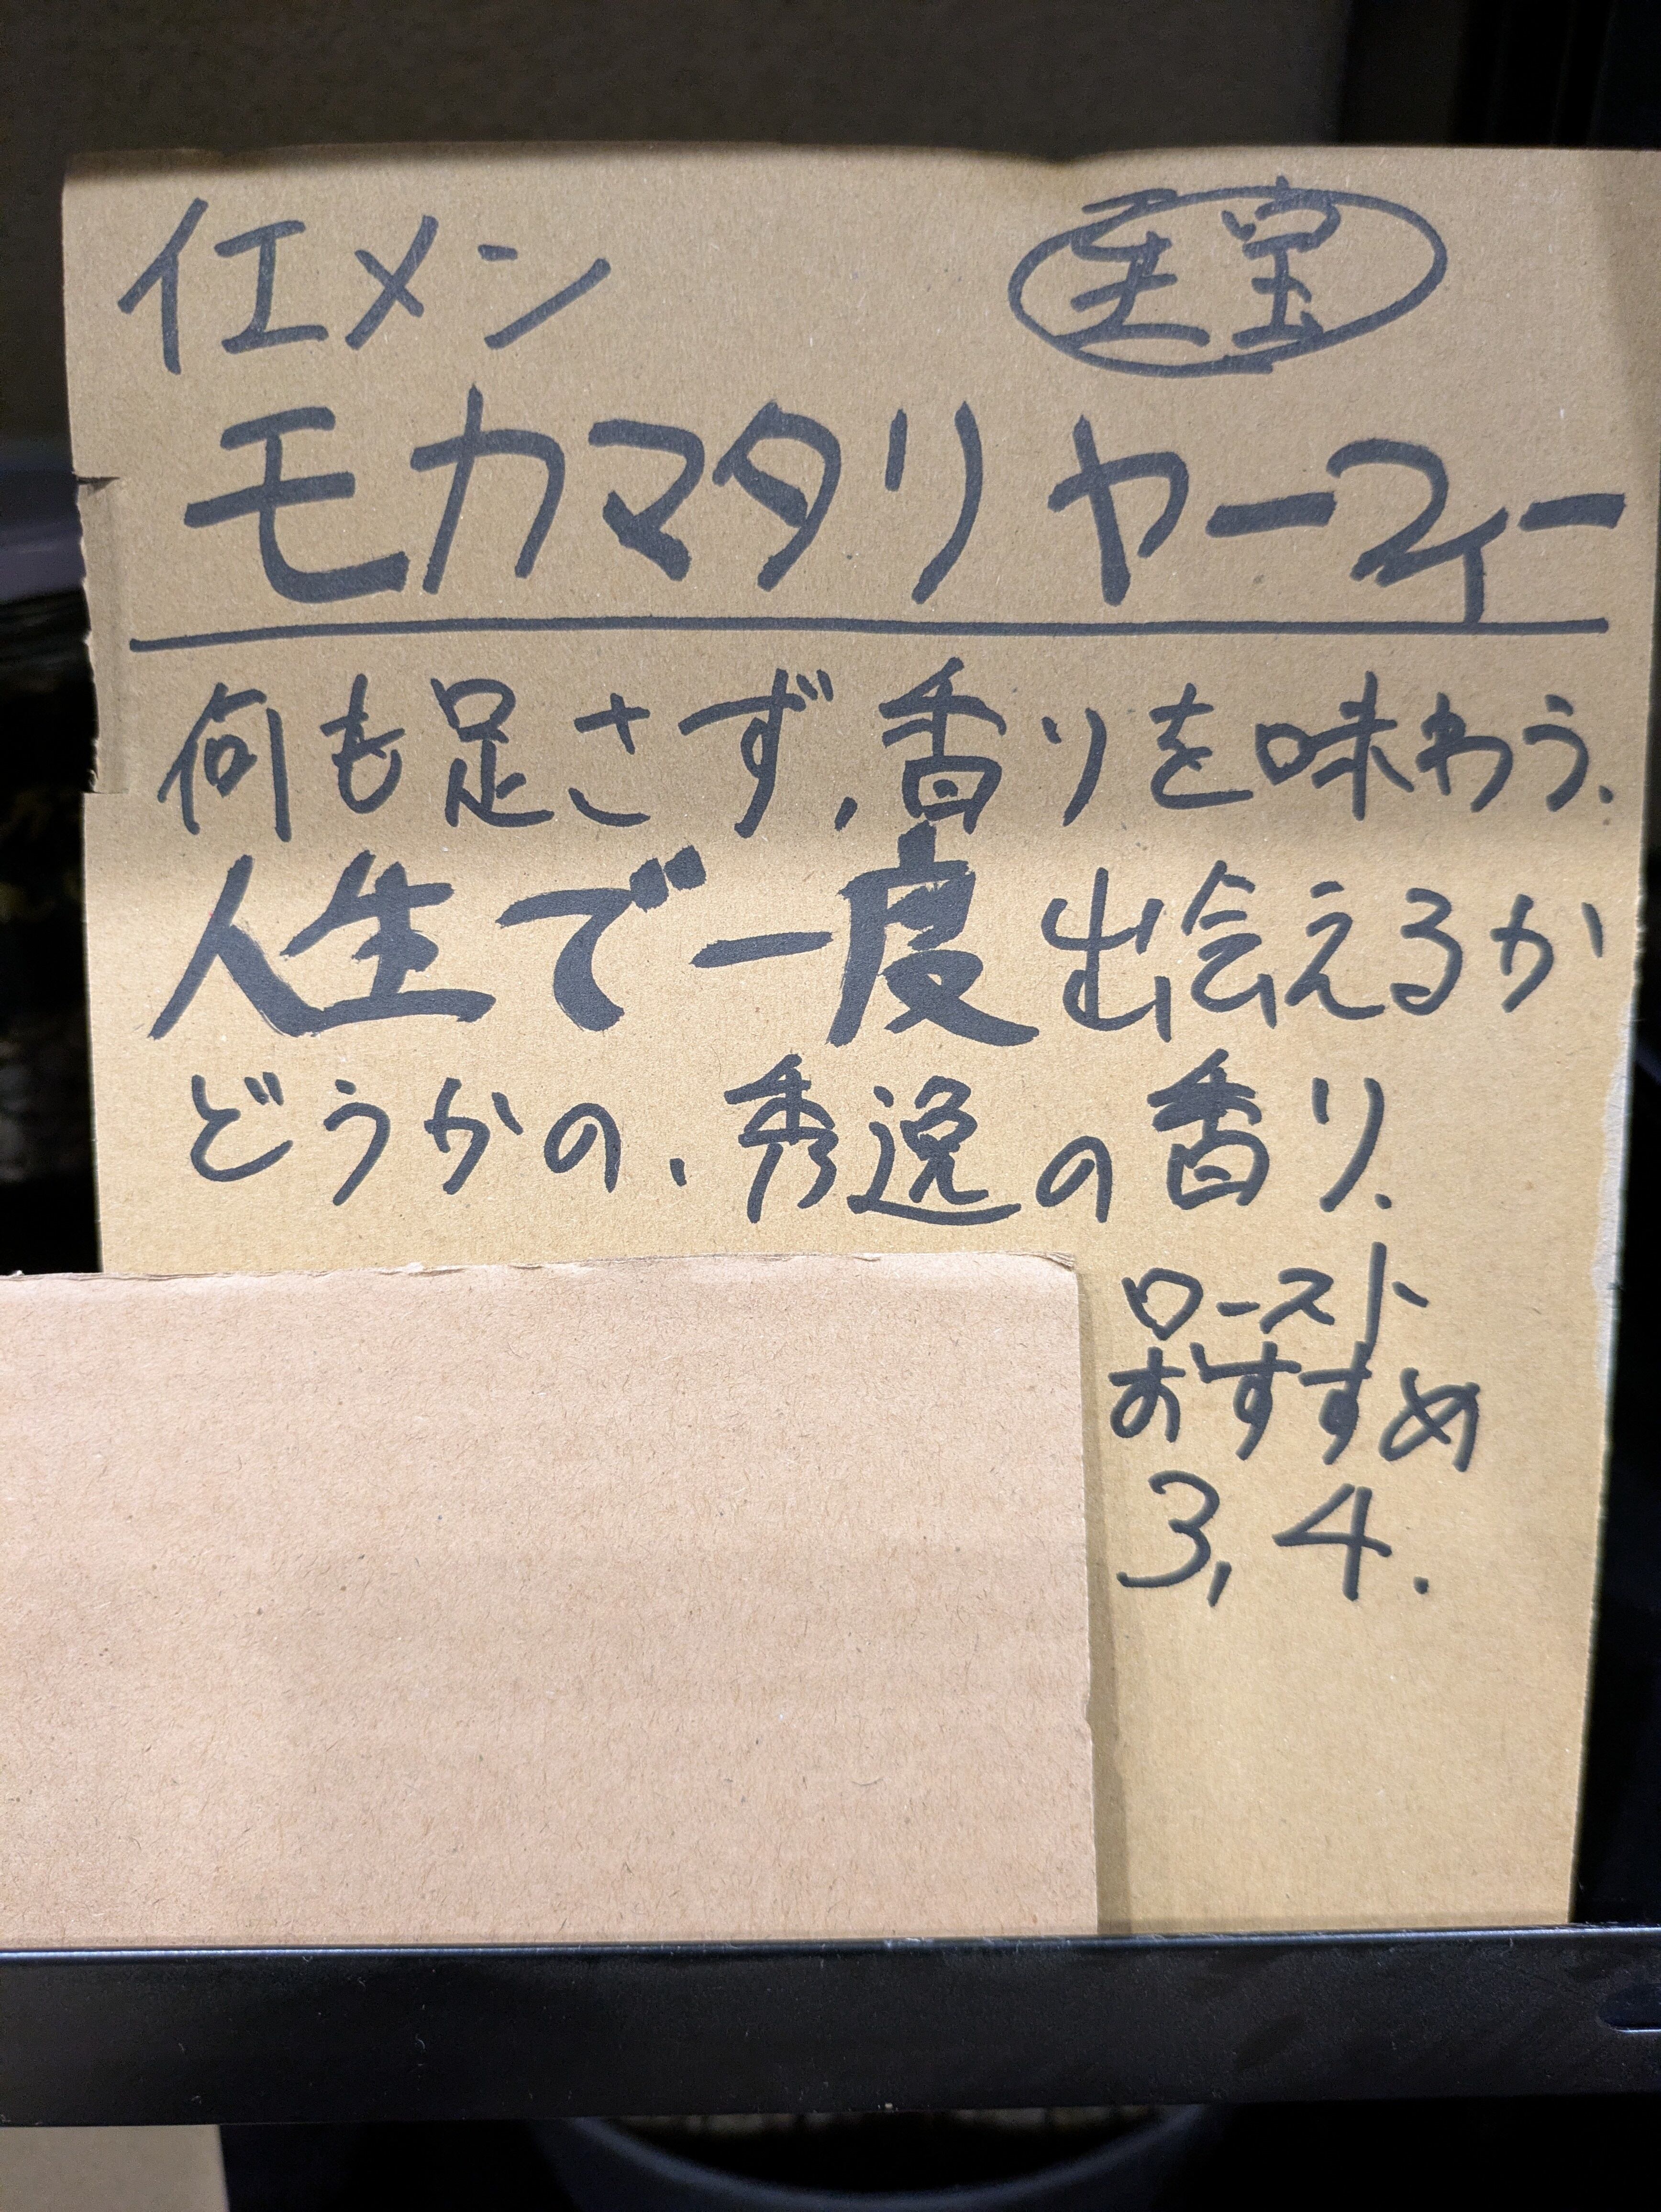 イエメン 至宝
モカマタリ ヤーフィー
何も足さず、香りを味わう.
人生で一度出会えるか
どうかの、秀逸の香り.
ロースト
おすすめ
3, 4.